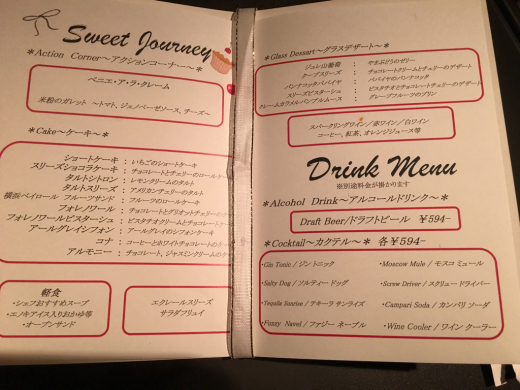 Sweet Journey
*Action Corner~アクションコーナー~*
ベニエ・ア・ラ・クレーム
米粉のガレット ~トマト、ジェノベーゼソース、チーズ~
*Cake~ケーキ~*
ショートケーキ : いちごのショートケーキ
スリーズショコラケーキ : チョコレートとチェリーのロールケーキ
タルトシトロン : レモンクリームのタルト
タルトスリーズ : アメリカンチェリーのタルト
横浜ベイロール フルーツサンド : フルーツのロールケーキ
フォレノワール : チョコレートとグリオットチェリーの
フォレノワールピスターシュ : ピスタチオクリームとチョコレート
アールグレイシフォン : アールグレイのシフォンケーキ
コナ : コーヒーとホワイトチョコレートの
アルモニー : チョコレート、ジャスミンクリームの
軽食
・シェフおすすめスープ
・エノキアイス入りおかゆ等
・オープンサンド
エクレールスリーズ
サラダフリュイ
*Glass Dessart~グラスデザート~*
ジュレ山葡萄 : やまぶどうのゼリー
クープスリーズ : チョコレートクリームとチェリーのデザート
パンナコッタパパイヤ : パパイヤのパンナコッタ
スリーズピスターシュ : ピスタチオとチョコレートのデザート
クレームカラメルパンプルムース : グレープフルーツのプリン
スパークリングワイン/赤ワイン/白ワイン
コーヒー、紅茶、オレンジジュース等
Drink Menu
※別途料金が掛かります
*Alcohol Drink~アルコールドリンク~*
Draft Beer/ドラフトビール ¥594-
*Cocktail~カクテル~* 各¥594-
・Gin Tonic / ジントニック ・Moscow Mule / モスコミュール
・Salty Dog / ソルティー ドッグ ・Screw Driver / スクリュードライバー
・Tequila Sunrise / テキーラ サンライズ ・Campari Soda / カンパリ ソーダ
・Fuzzy Navel / ファジー ネーブル ・Wine Cooler / ワイン クーラー